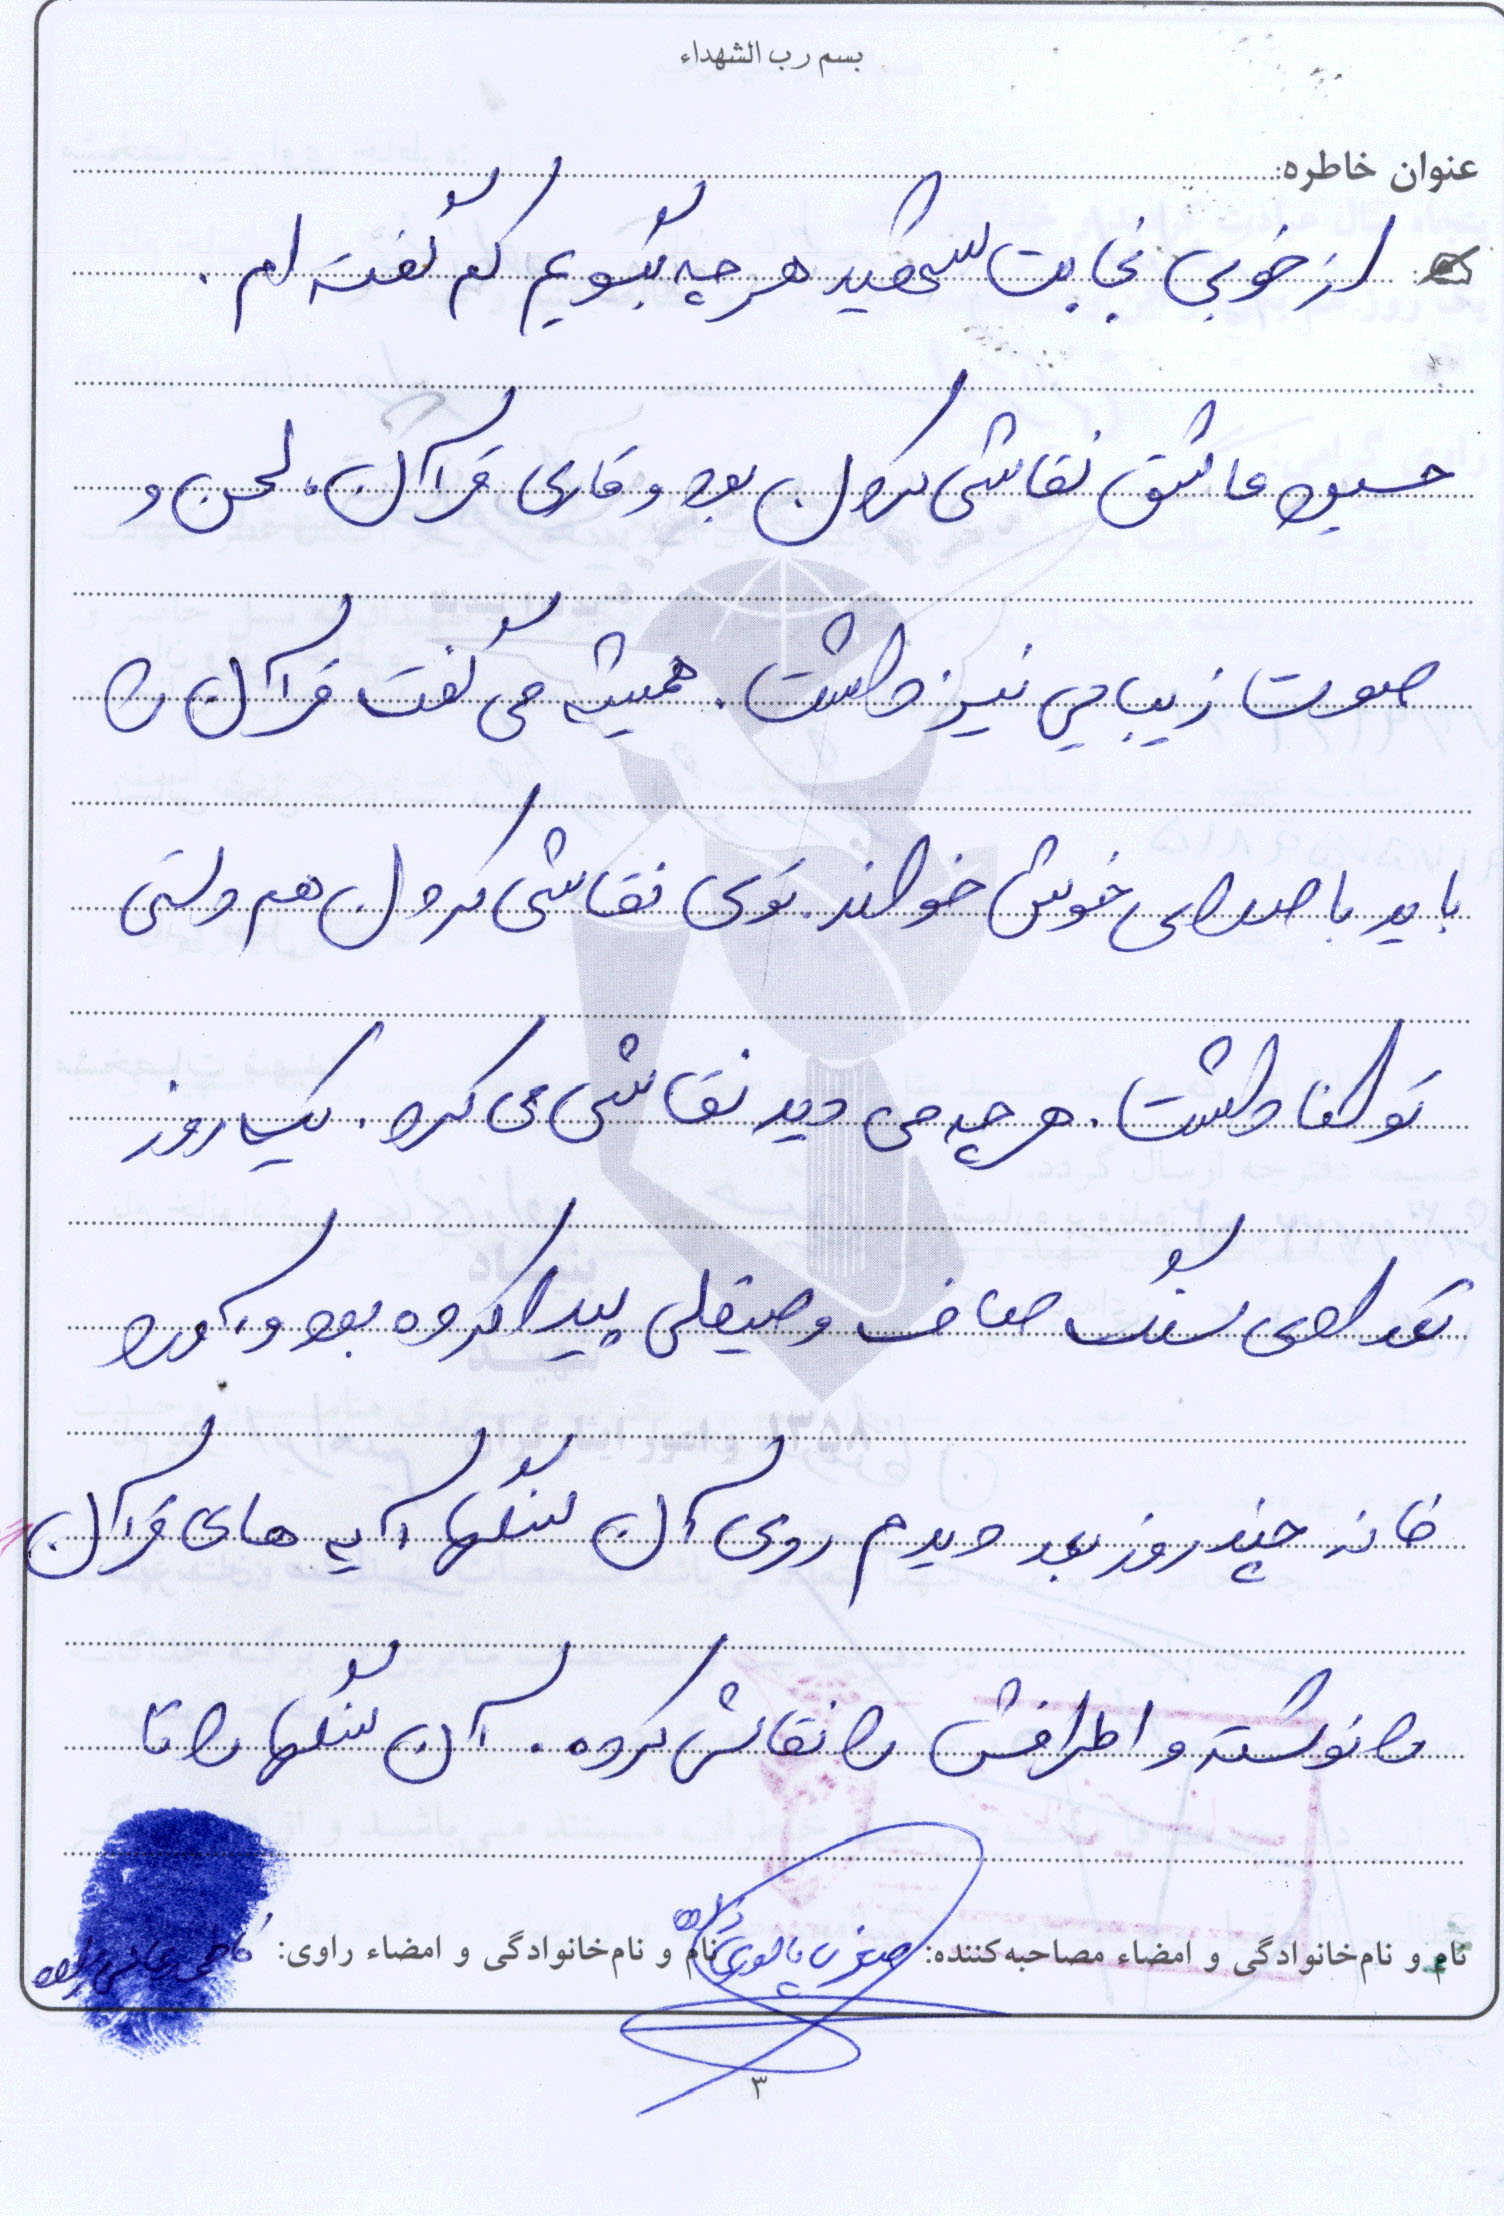 بسم رب الشهداء
عنوان خاطره:
از خوبی نجابت شهید هر چه بگویم کم گفته ام .
حسین عاشق نقاشی کردن بود و قاری قرآن، لحن و
صوت زیبایی نیز داشت . همیشه می گفت قرآن را
باید با صدای خوش خواند . توی نقاشی کردن هم دستی
توانا داشت . هر چه می دید نقاشی می کرد . یک روز
تعدادی سنگ صاف و صیقلی پیدا کرده بود و آورد
خانه چند روز بعد دیدم روی آن سنگها آیه های قرآن
را نوشته و اطرافش را نقاشی کرده . آن سنگها را تا
نام و نام‌خانوادگی و امضاء مصاحبه‌کننده: نام و نام‌خانوادگی و امضاء راوی:
۳